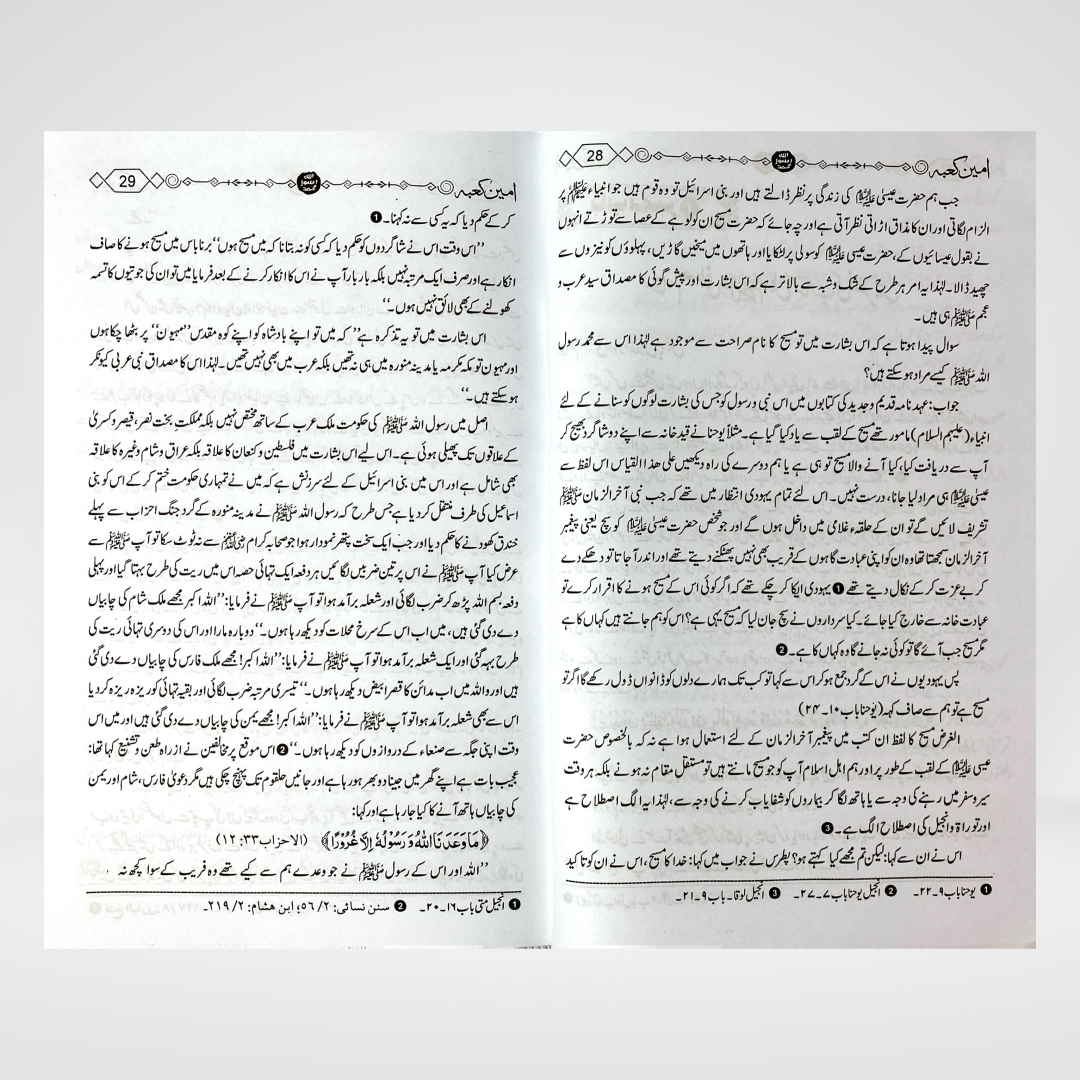 امین کعبہ 28
جب ہم حضرت عیسیٰ علیہ السلام کی زندگی پر نظر ڈالتے ہیں اور بنی اسرائیل تو وہ قوم ہیں جو انبیاء علیہم السلام پر
الزام لگاتی اور ان کا مذاق اڑاتی نظر آتی ہے اور چہ جائے کہ حضرت مسیح ان کو لوہے کے عصا سے توڑتے انہوں
نے بقول عیسائیوں کے، حضرت عیسیٰ علیہ السلام کو سولی پر لٹکایا اور ہاتھوں میں میخیں گاڑیں، پہلوؤں کو نیزوں سے
چھید ڈالا۔ لہٰذا یہ امر ہر طرح کے شک و شبہ سے بالاتر ہے کہ اس بشارت اور پیش گوئی کا مصداق سید عرب و
عجم ﷺ ہی ہیں۔
سوال پیدا ہوتا ہے کہ اس بشارت میں تو مسیح کا نام صراحت سے موجود ہے لہٰذا اس سے محمد رسول
اللہ ﷺ کیسے مراد ہو سکتے ہیں؟
جواب: عہد نامہ قدیم و جدید کی کتابوں میں اس نبی و رسول کو جس کی بشارت لوگوں کو سنانے کے لئے
انبیاء (علیہم السلام) مامور تھے مسیح کے لقب سے یاد کیا گیا ہے۔ مثلاً یوحنا نے قید خانہ سے اپنے دو شاگرد بھیج کر
آپ سے دریافت کیا، کیا آنے والا مسیح تو ہی ہے یا ہم دوسرے کی راہ دیکھیں علی ھذا القیاس اس لفظ سے
عیسیٰ علیہ السلام ہی مراد لیا جانا، درست نہیں۔ اس لئے تمام یہودی انتظار میں تھے کہ جب نبی آخر الزمان ﷺ
تشریف لائیں گے تو ان کے حلقہء غلامی میں داخل ہوں گے اور جو شخص حضرت عیسیٰ علیہ السلام کو مسیح یعنی پیغمبر
آخر الزمان سمجھتا تھا وہ ان کو اپنی عبادت گاہوں کے قریب بھی نہیں پھٹکنے دیتے تھے اور اندر آ جاتا تو دھکے دے
کر بے عزت کر کے نکال دیتے تھے ❶ یہودی ایکا کر چکے تھے کہ اگر کوئی اس کے مسیح ہونے کا اقرار کرے تو
عبادت خانہ سے خارج کیا جائے۔ کیا سرداروں نے سچ جان لیا کہ مسیح یہی ہے؟ اس کو ہم جانتے ہیں کہاں کا ہے
مگر مسیح جب آئے گا تو کوئی نہ جانے گا وہ کہاں کا ہے۔ ❷
پس یہودیوں نے اس کے گرد جمع ہو کر اس سے کہا تو کب تک ہمارے دلوں کو ڈانواں ڈول رکھے گا اگر تو
مسیح ہے تو ہم سے صاف کہہ (یوحنا باب ۱۰۔۲۴)
الغرض مسیح کا لفظ ان کتب میں پیغمبر آخر الزمان کے لئے استعمال ہوا ہے نہ کہ بالخصوص حضرت
عیسیٰ علیہ السلام کے لقب کے طور پر اور ہم اہل اسلام آپ کو جو مسیح مانتے ہیں تو مستقل مقام نہ ہونے بلکہ ہر وقت
سیر و سفر میں رہنے کی وجہ سے یا ہاتھ لگا کر بیماروں کو شفایاب کرنے کی وجہ سے، لہٰذا یہ الگ اصطلاح ہے
اور توراۃ و انجیل کی اصطلاح الگ ہے۔ ❸
اس نے ان سے کہا: لیکن تم مجھے کیا کہتے ہو؟ پطرس نے جواب میں کہا: خدا کا مسیح، اس نے ان کو تاکید
❶ یوحنا باب ۹۔۲۲۔ ❷ انجیل یوحنا باب ۷۔۲۷۔ ❸ انجیل لوقا۔ باب ۹۔۲۱۔
امین کعبہ 29
کر کے حکم دیا کہ یہ کسی سے نہ کہنا۔ ❶
’’اس وقت اس نے شاگردوں کو حکم دیا کہ کسی کو نہ بتانا کہ میں مسیح ہوں‘‘ برناباس میں مسیح ہونے کا صاف
انکار ہے اور صرف ایک مرتبہ نہیں بلکہ بار بار آپ نے اس کا انکار کرنے کے بعد فرمایا میں تو ان کی جوتیوں کا تسمہ
کھولنے کے بھی لائق نہیں ہوں۔‘‘
اس بشارت میں تو یہ تذکرہ ہے’’ کہ میں تو اپنے بادشاہ کو اپنے کوہ مقدس ’’مہیون‘‘ پر بٹھا چکا ہوں
اور مہیون تو مکہ مکرمہ یا مدینہ منورہ میں ہی نہ تھیں بلکہ عرب میں بھی نہیں تھیں۔ لہٰذا اس کا مصداق نبی عربی کیونکر
ہو سکتے ہیں۔‘‘
اصل میں رسول اللہ ﷺ کی حکومت ملک عرب کے ساتھ مختص نہیں بلکہ مملکتِ بخت نصر، قیصر و کسریٰ
کے علاقوں تک پھیلی ہوئی ہے۔ اس لیے اس بشارت میں فلسطین و کنعان کا علاقہ بلکہ عراق و شام وغیرہ کا علاقہ
بھی شامل ہے اور اس میں بنی اسرائیل کے لئے سرزنش ہے کہ میں نے تمہاری حکومت ختم کر کے اس کو بنی
اسماعیل کی طرف منتقل کر دیا ہے جس طرح کہ رسول اللہ ﷺ نے مدینہ منورہ کے گرد جنگ احزاب سے پہلے
خندق کھودنے کا حکم دیا اور جب ایک سخت پتھر نمودار ہوا جو صحابہ کرام رضی اللہ عنہم سے نہ ٹوٹ سکا تو آپ ﷺ سے
عرض کیا آپ ﷺ نے اس پر تین ضربیں لگائیں ہر دفعہ ایک تہائی حصہ اس میں ریت کی طرح بہتا گیا اور پہلی
دفعہ بسم اللہ پڑھ کر ضرب لگائی اور شعلہ برآمد ہوا تو آپ ﷺ نے فرمایا: ’’اللہ اکبر مجھے ملک شام کی چابیاں
دے دی گئی ہیں، میں اب اس کے سرخ محلات کو دیکھ رہا ہوں۔‘‘ دوبارہ مارا اور اس کی دوسری تہائی ریت کی
طرح بہہ گئی اور ایک شعلہ برآمد ہوا تو آپ ﷺ نے فرمایا: ’’اللہ اکبر! مجھے ملک فارس کی چابیاں دے دی گئی
ہیں اور واللہ میں اب مدائن کا قصر ابیض دیکھ رہا ہوں۔‘‘ تیسری مرتبہ ضرب لگائی اور بقیہ تہائی کو ریزہ ریزہ کر دیا
اس سے بھی شعلہ برآمد ہوا تو آپ ﷺ نے فرمایا: ’’اللہ اکبر! مجھے یمن کی چابیاں دے دی گئی ہیں اور میں اس
وقت اپنی جگہ سے صنعاء کے دروازوں کو دیکھ رہا ہوں۔‘‘ ❷ اس موقع پر مخالفین نے از راہ طعن و تشنیع کہا تھا:
عجیب بات ہے اپنے گھر میں جینا دوبھر ہو رہا ہے اور جانیں حلقوم تک پہنچ چکی ہیں مگر دعویٰ فارس، شام اور یمن
کی چابیاں ہاتھ آنے کا کیا جا رہا ہے اور کہا:
﴿مَا وَعَدَنَا اللّٰهُ وَرَسُوْلُهٗ اِلَّا غُرُوْرًا﴾ (الاحزاب ۳۳:۱۲)
’’اللہ اور اس کے رسول ﷺ نے جو وعدے ہم سے کیے تھے وہ فریب کے سوا کچھ نہ
❶ انجیل متی باب ۱۶۔۲۰۔ ❷ سنن نسائی: ۲/ ۵۶؛ ابن ھشام: ۲/ ۲۱۹۔